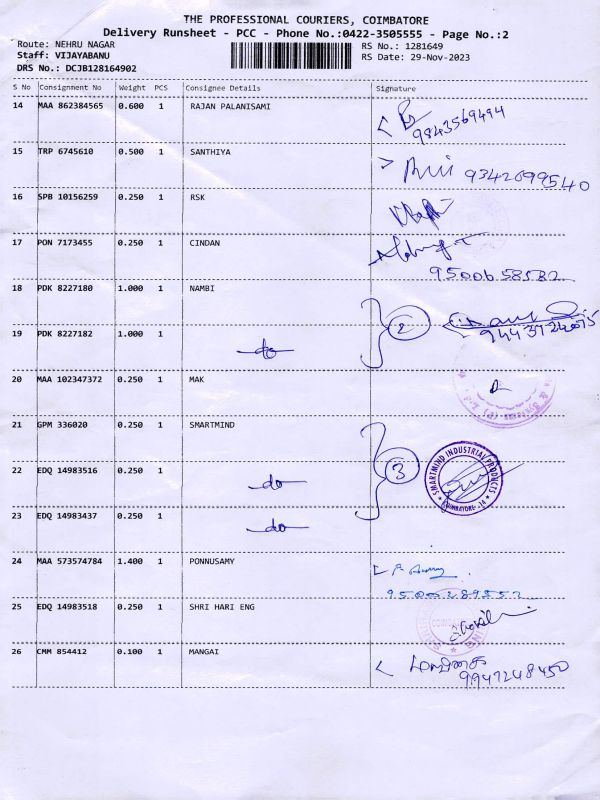 THE PROFESSIONAL COURIERS, COIMBATORE
Delivery Runsheet - PCC - Phone No.:0422-3505555 - Page No.:2
Route: NEHRU NAGAR
Staff: VIJAYABANU
DRS No.: DCJB128164902
RS No.: 1281649
RS Date: 29-Nov-2023
S No Consignment No Weight PCS Consignee Details Signature
14 MAA 862384565 0.600 1 RAJAN PALANISAMI
9843569494
15 TRP 6745610 0.500 1 SANTHIYA
9342699540
16 SPB 10156259 0.250 1 RSK
17 PON 7173455 0.250 1 CINDAN
9500658582
18 PDK 8227180 1.000 1 NAMBI
2
19 PDK 8227182 1.000 1
do
20 MAA 102347372 0.250 1 MAK
21 GPM 336020 0.250 1 SMARTMIND
3
SMARTMIND INDUSTRIAL PRODUCTS
COIMBATORE-14
22 EDQ 14983516 0.250 1
do
23 EDQ 14983437 0.250 1
do
24 MAA 573574784 1.400 1 PONNUSAMY
25 EDQ 14983518 0.250 1 SHRI HARI ENG
26 CMM 854412 0.100 1 MANGAI
9947248450